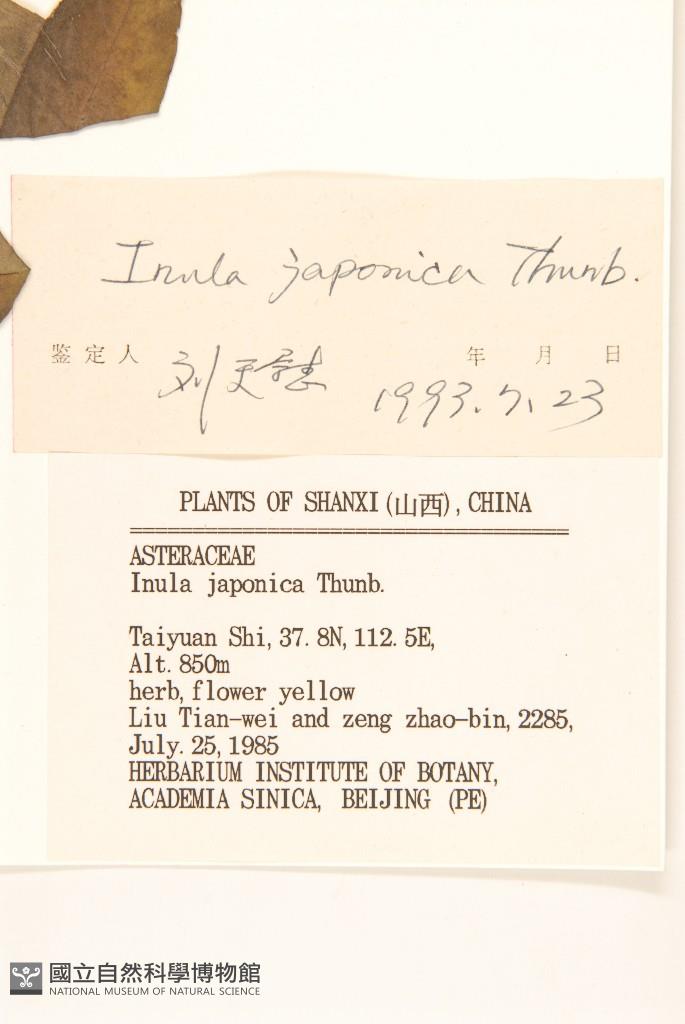 Inula japonica Thunb.
鉴定人 刘 年 月 日
1993.7.23
PLANTS OF SHANXI(山西), CHINA
ASTERACEAE
Inula japonica Thunb.
Taiyuan Shi, 37.8N, 112.5E,
Alt. 850m
herb, flower yellow
Liu Tian-wei and zeng zhao-bin, 2285,
July. 25, 1985
HERBARIUM INSTITUTE OF BOTANY,
ACADEMIA SINICA, BEIJING (PE)
國立自然科學博物館
NATIONAL MUSEUM OF NATURAL SCIENCE